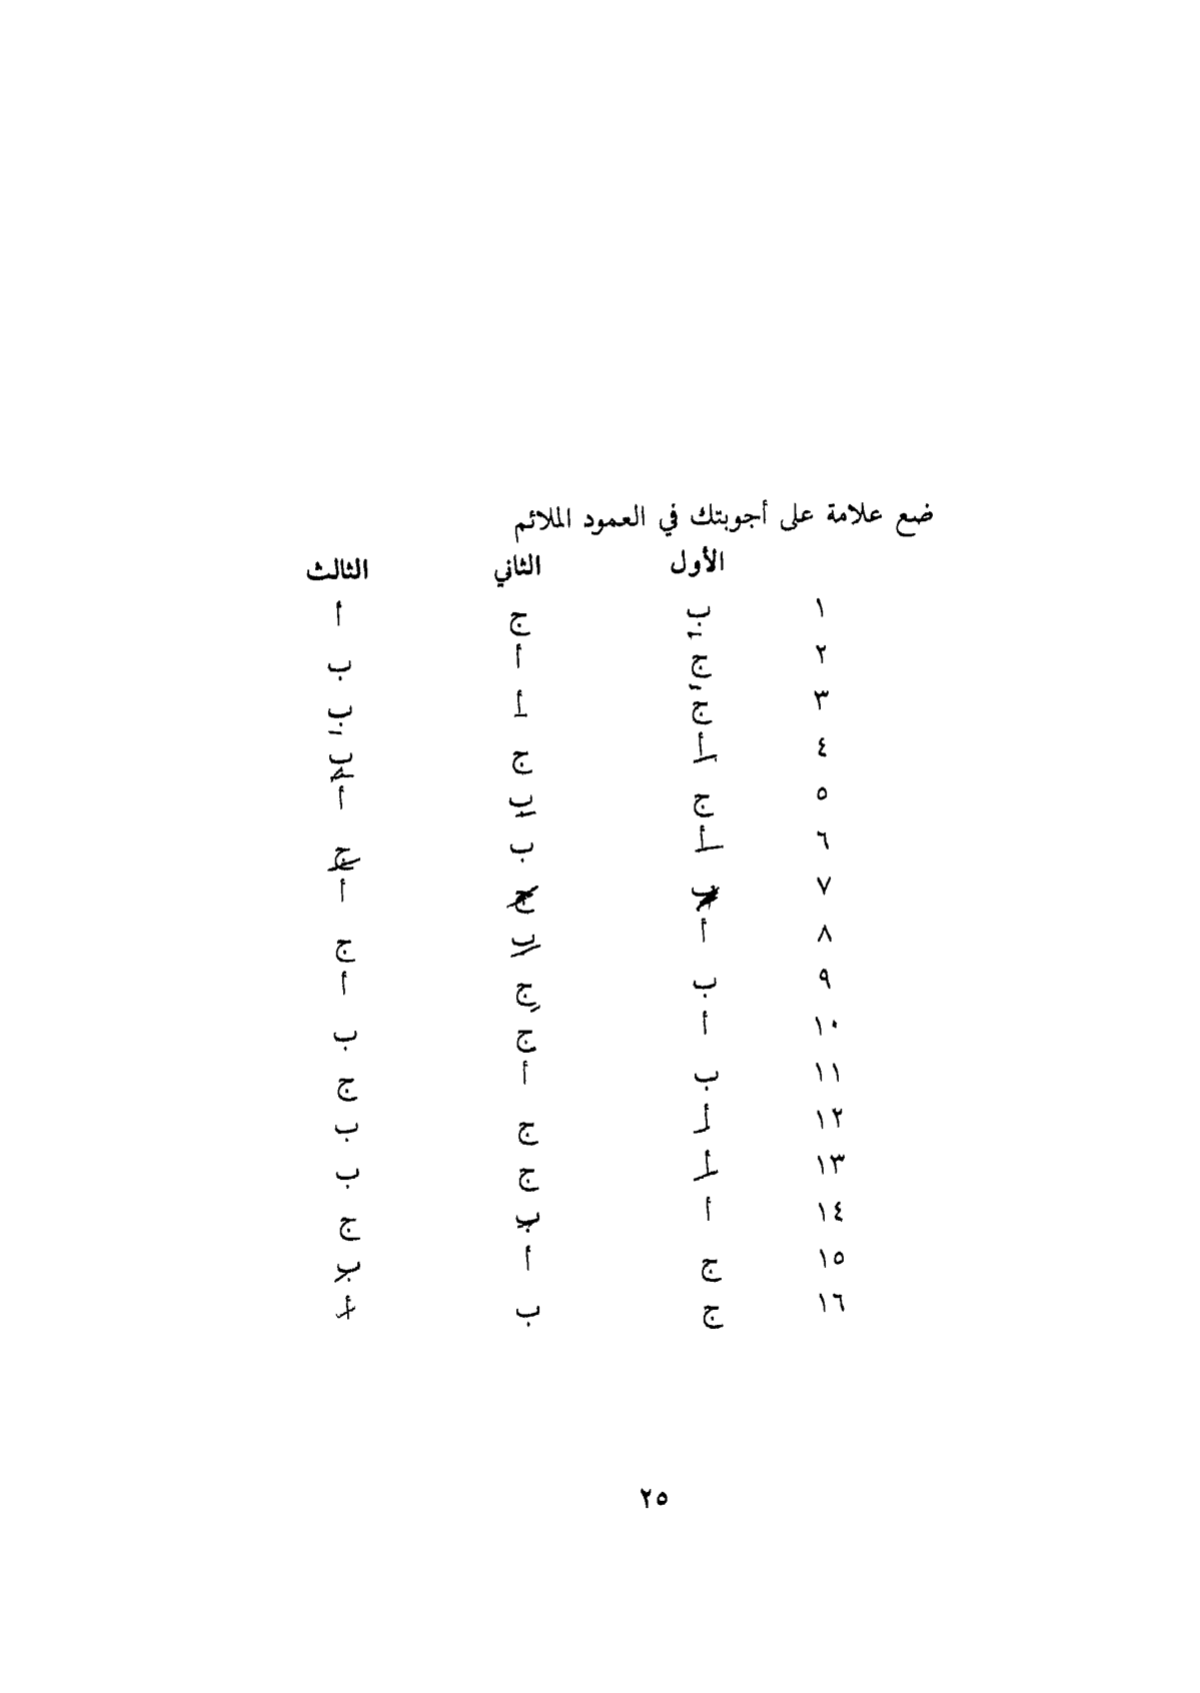 ضع علامة على أجوبتك في العمود الملائم
الأول الثاني الثالث
١ ب ج أ
٢ ج أ ب
٣ ج أ ب
٤ أ ج ب
٥ ج ب أ
٦ أ ب ج
٧ ب ج أ
٨ أ ب ج
٩ ب ج أ
١٠ أ ج ب
١١ ب أ ج
١٢ أ ج ب
١٣ أ ج ب
١٤ أ ب ج
١٥ ج أ ب
١٦ ج ب أ
٢٥